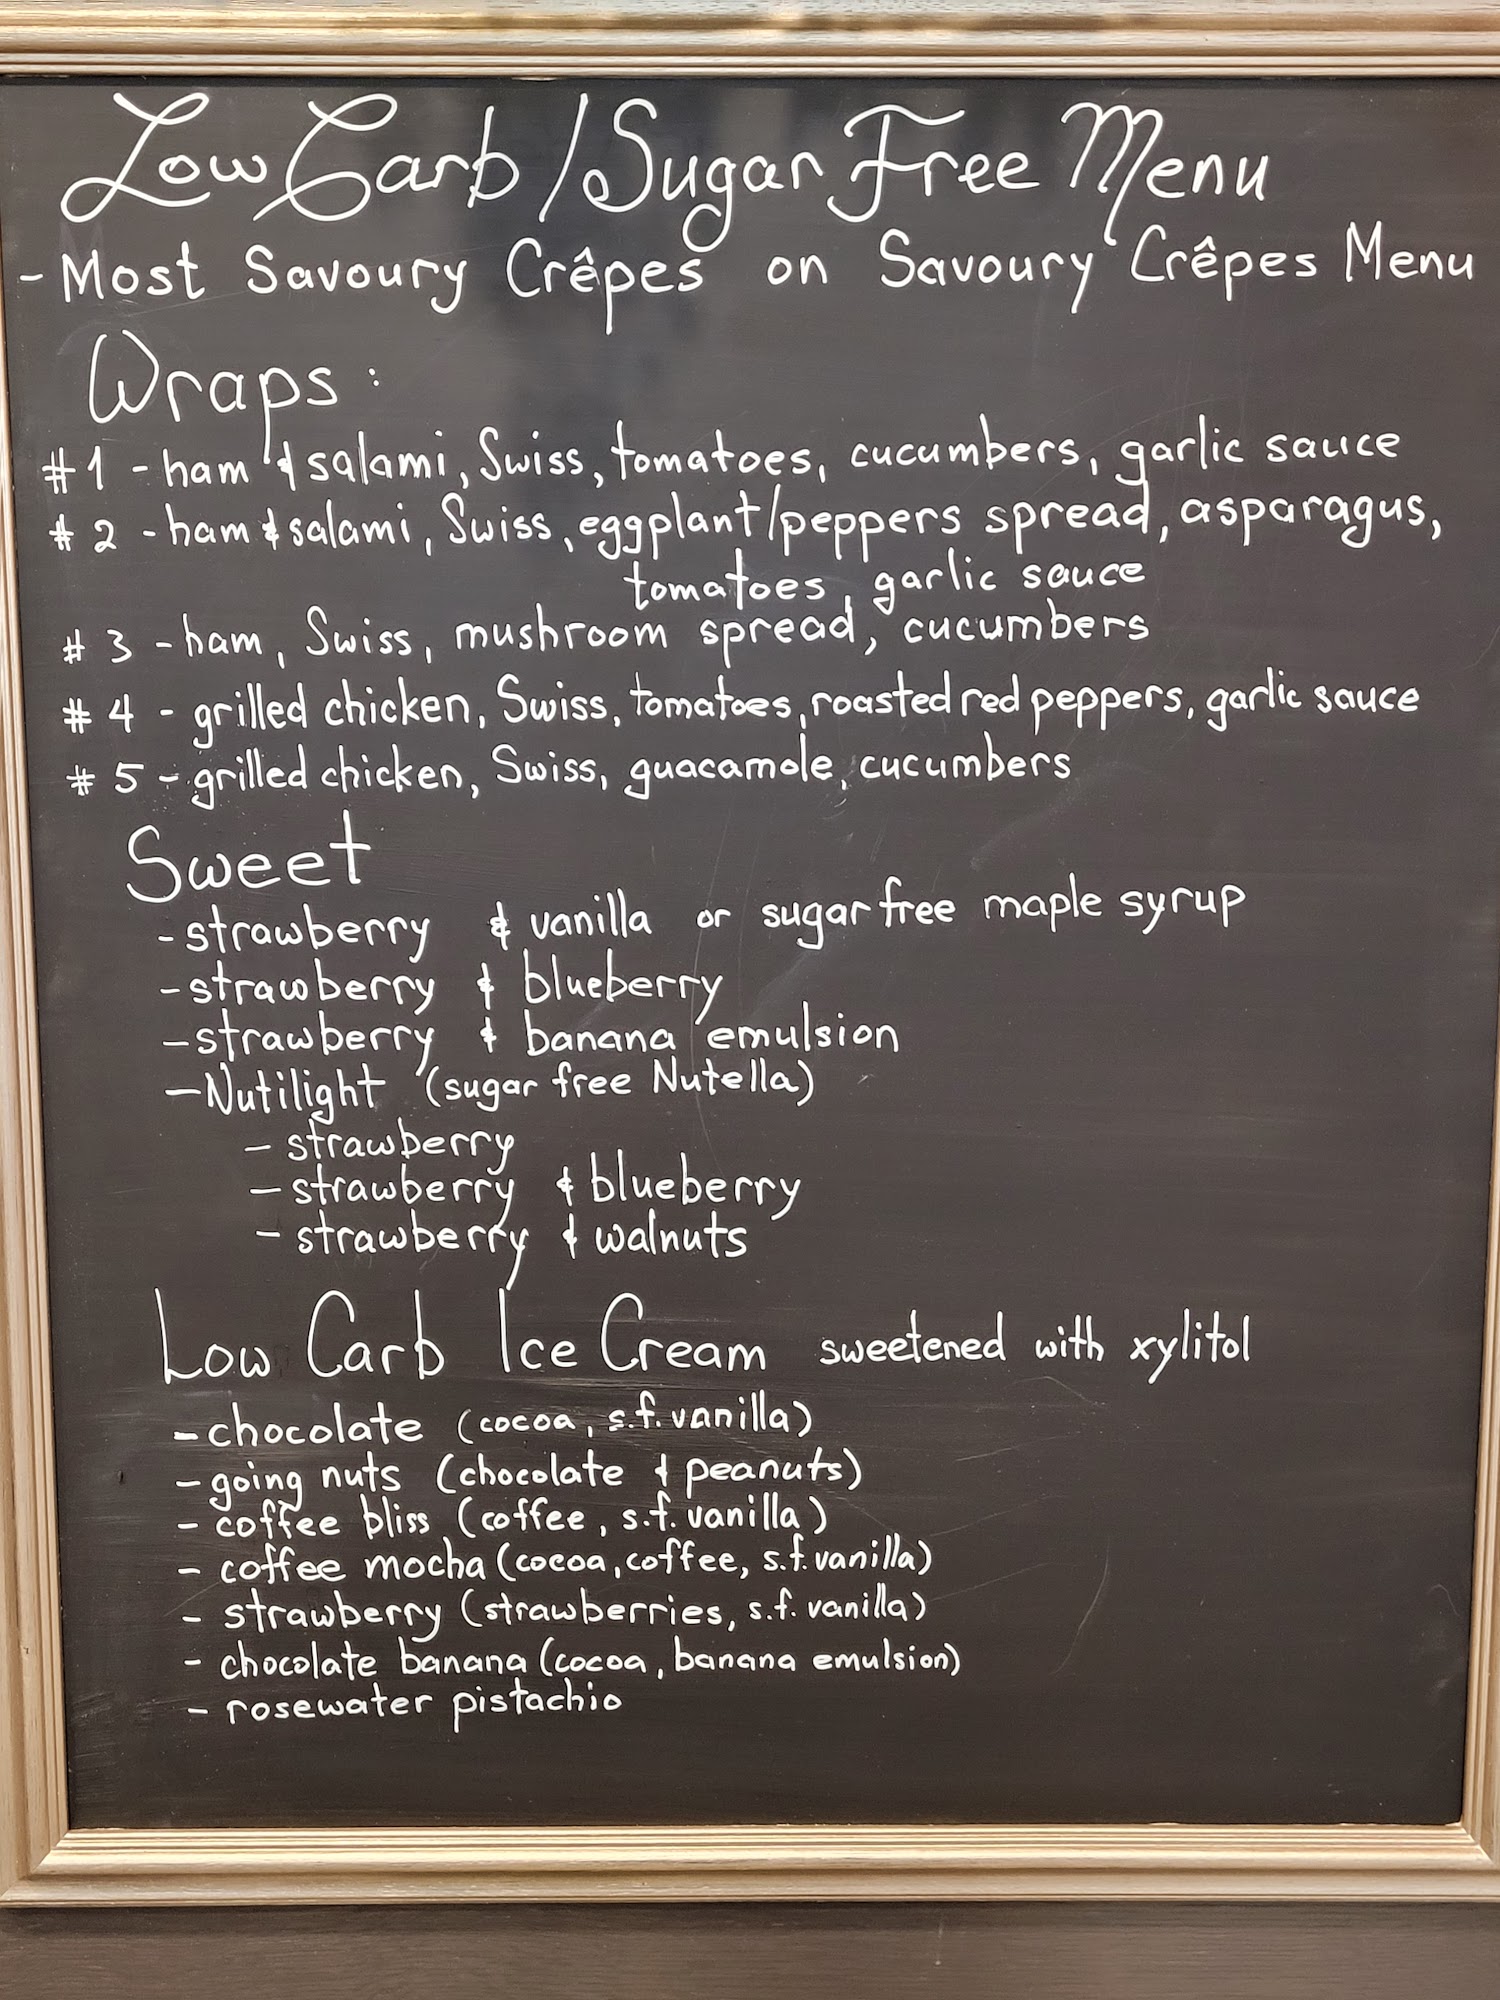 Low Carb/Sugar Free Menu
- Most Savoury Crêpes on Savoury Crêpes Menu
Wraps:
#1 - ham & salami, Swiss, tomatoes, cucumbers, garlic sauce
#2 - ham & salami, Swiss, eggplant/peppers spread, asparagus,
tomatoes, garlic sauce
#3 - ham, Swiss, mushroom spread, cucumbers
#4 - grilled chicken, Swiss, tomatoes, roasted red peppers, garlic sauce
#5 - grilled chicken, Swiss, guacamole, cucumbers
Sweet
- strawberry & vanilla or sugar free maple syrup
- strawberry & blueberry
- strawberry & banana emulsion
- Nutilight (sugar free Nutella)
- strawberry
- strawberry & blueberry
- strawberry & walnuts
Low Carb Ice Cream sweetened with xylitol
- chocolate (cocoa, s.f. vanilla)
- going nuts (chocolate & peanuts)
- coffee bliss (coffee, s.f. vanilla)
- coffee mocha (cocoa, coffee, s.f. vanilla)
- strawberry (strawberries, s.f. vanilla)
- chocolate banana (cocoa, banana emulsion)
- rosewater pistachio